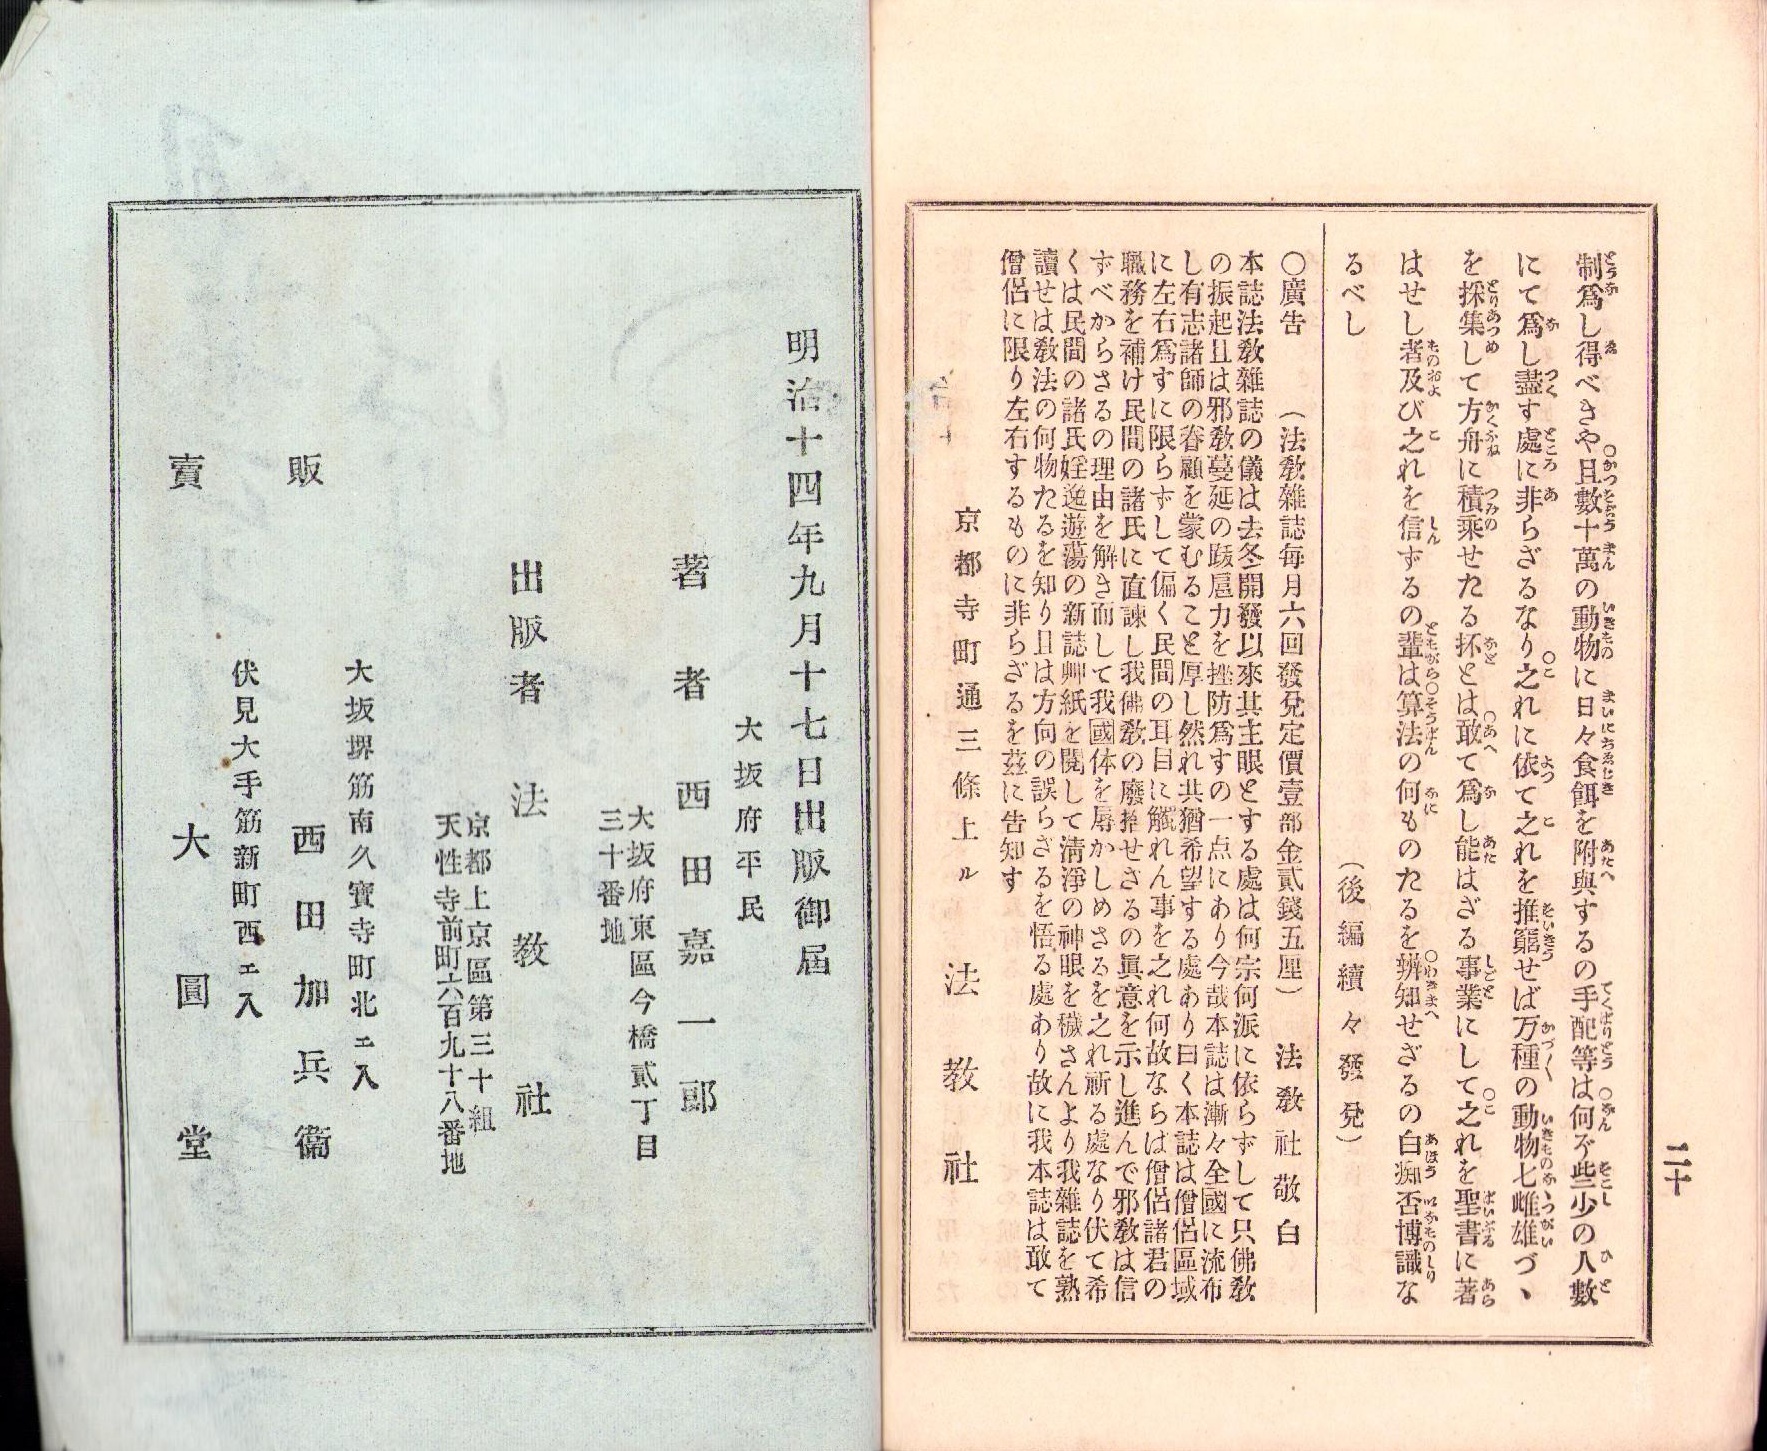 二十
制爲し得べきや且數十萬の動物に日々食餌を附與するの手配等は何ぞ些少の人數
にて爲し盡す處に非らざるなり之れに依て之れを推窮せば万種の動物七雌雄づヽ
を採集して方舟に積乘せたる抔とは敢て爲し能はざる事業にして之れを聖書に著
はせし者及び之れを信ずるの輩は算法の何ものたるを辨知せざるの白痴否博識な
るべし
（後編續々發兌）
〇廣告 （法教雜誌毎月六回發兌定價壹部金貳錢五厘） 法教社敬白
本誌法教雜誌の儀は去冬開發以來其主眼とする處は何宗何派に依らずして只佛教
の振起且は邪教蔓延の跋扈力を挫防爲すの一点にあり今哉本誌は漸々全國に流布
し有志諸師の眷顧を蒙むること厚し然れ共猶希望する處あり曰く本誌は僧侶區域
に左右爲ずに限らずして偏く民間の耳目に觸れん事を之れ何故ならば僧侶諸君の
職務を補け民間の諸氏に直諫し我佛教の廢搉せさるの眞意を示し進んで邪教は信
ずべからさるの理由を解き而して我國体を辱かしめさるを之れ祈る處なり伏て希
くは民間の諸氏婬逸遊蕩の新誌艸紙を閲して淸淨の神眼を穢さんより我雜誌を熟
讀せは教法の何物たるを知り且は方向の誤らざるを悟る處あり故に我本誌は敢て
僧侶に限り左右するものに非らざるを茲に告知す
京都寺町通三條上ル 法教社
明治十四年九月十七日出版御屆
大坂府平民
著者 西田嘉一郎
大坂府東區今橋貳丁目
三十番地
出版者 法教社
京都上京區第三十組
天性寺前町六百九十八番地
大坂堺筋南久寶寺町北ヱ入
販 西田加兵衞
伏見大手筋新町西ヱ入
賣 大圓堂